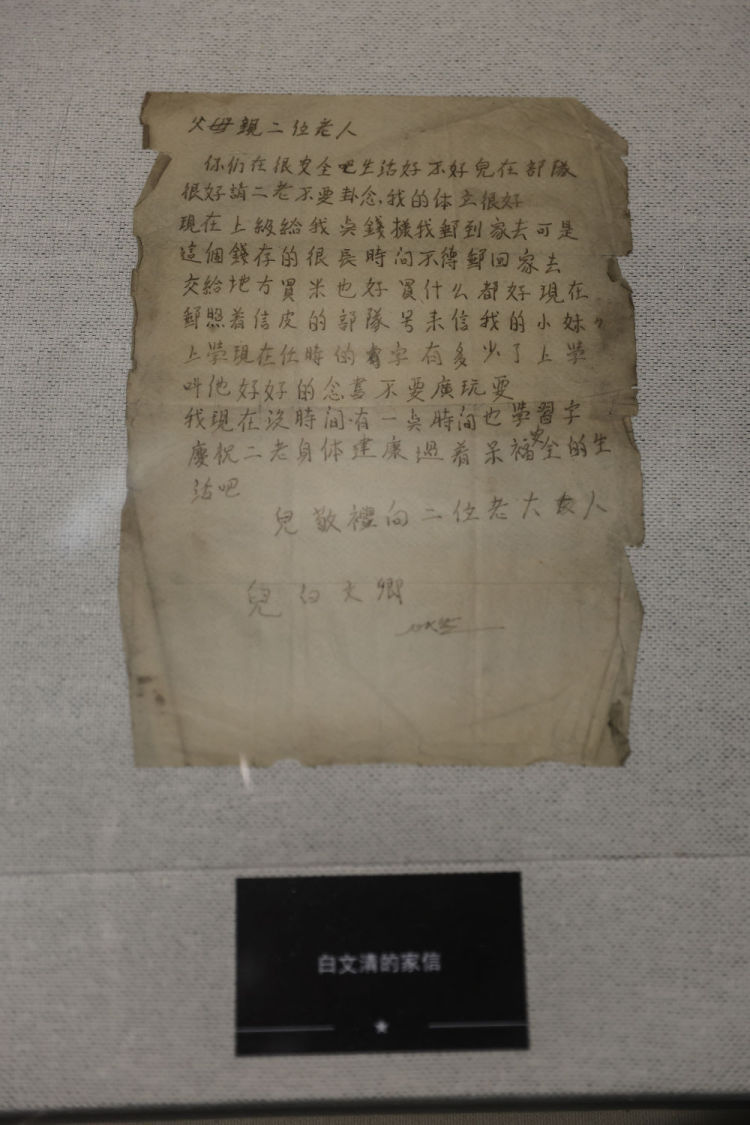 父母親二位老人
你们在很安全吧生活好不好兒在部隊
很好請二老不要卦念我的体立很好
現在上級給我員錢機我郵到家去可是
這個錢存的很長時间不得郵回家去
交給地方買米也好買什么都好現在
郵照着信皮的部隊号来信我的小妹
上學現在任時的字有多少了上學
叫他好好的念書不要廣玩耍
我現在沒時間有一員時間也學習字
慶祝二老身体建康過着呆福安全的生
活吧
兒敬禮向二位老大人
兒白文卿
白文清的家信